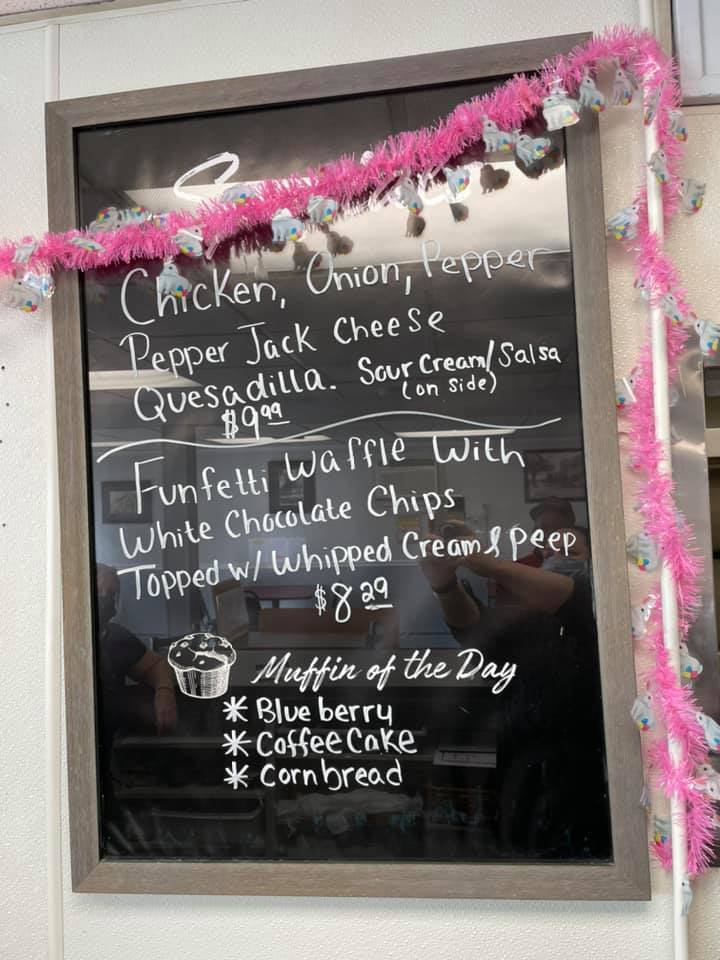 Chicken, Onion, Pepper
Pepper Jack Cheese
Quesadilla. Sour Cream/Salsa
(on side)
$9.99
Funfetti Waffle With
White Chocolate Chips
Topped w/ Whipped Cream & peep
$8.29
Muffin of the Day
* Blueberry
* Coffee Cake
* Cornbread